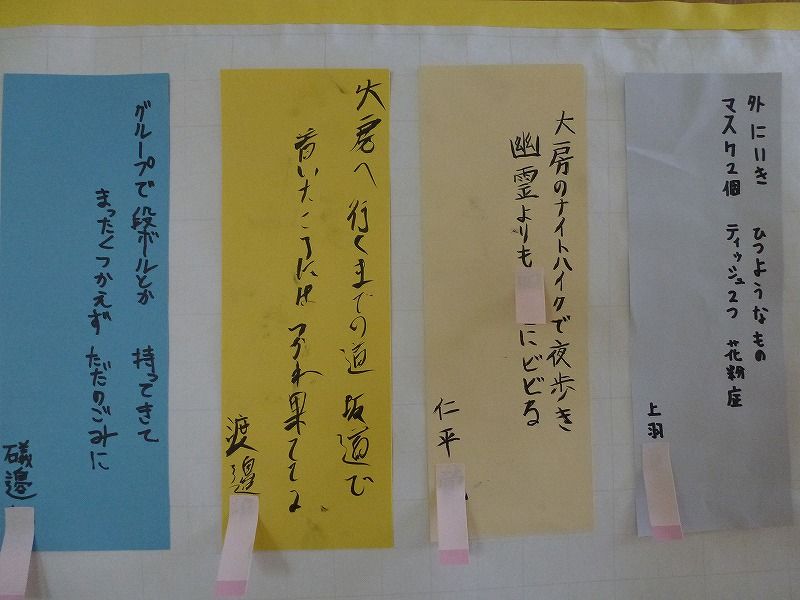 外にいき ひつようなもの
マスク2個 ティッシュ2つ 花粉症
上羽
大房のナイトハイクで夜歩き
幽霊よりも にビビる
仁平
大房へ行くまでの道 坂道で
着いたころには つかれ果ててる
渡邉
グループで 段ボールとか 持ってきて
まったくつかえず ただのごみに
礒邊